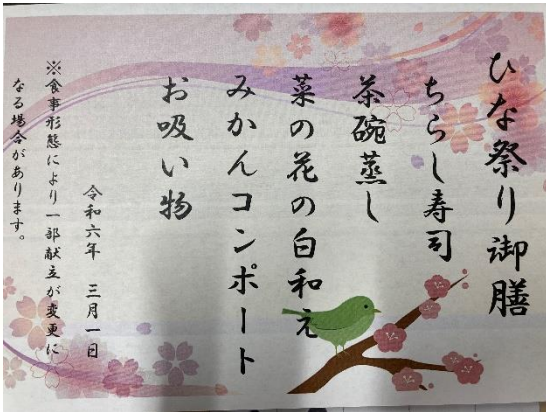 ひな祭り御膳
ちらし寿司
茶碗蒸し
菜の花の白和え
みかんコンポート
お吸い物
令和六年　三月一日
※食事形態により一部献立が変更に
なる場合があります。